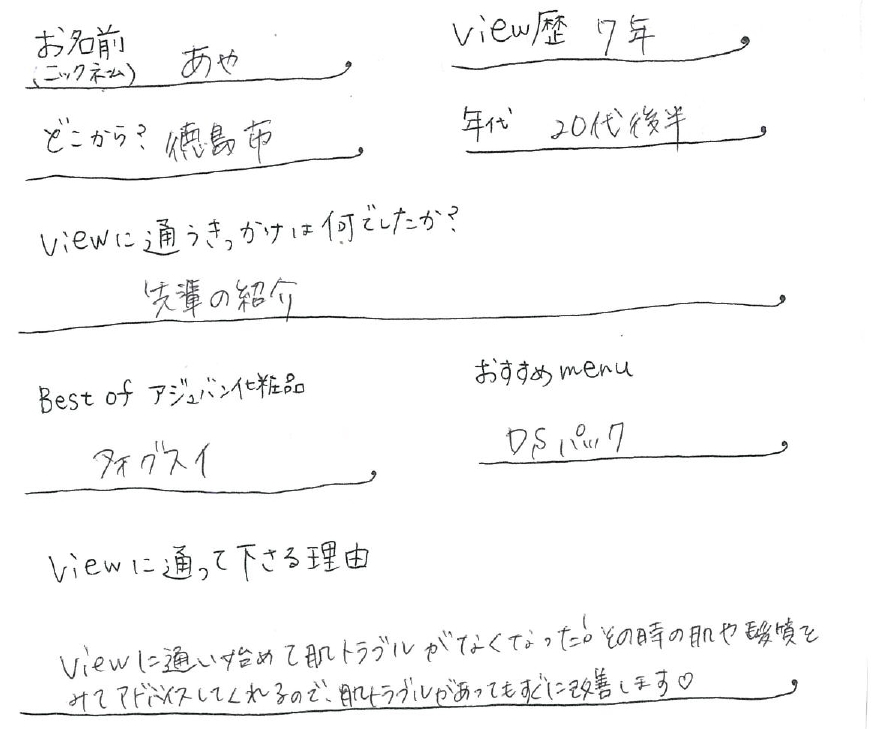 お名前 あや
(ニックネーム)
view歴 7年
どこから? 徳島市
年代 20代後半
viewに通うきっかけは何でしたか?
先輩の紹介
Best of アジュバン化粧品
おすすめmenu
DSパック
viewに通って下さる理由
viewに通い始めて肌トラブルがなくなった!その時の肌や髪質を
みてアドバイスしてくれるので、肌トラブルがあってもすぐに改善します♡